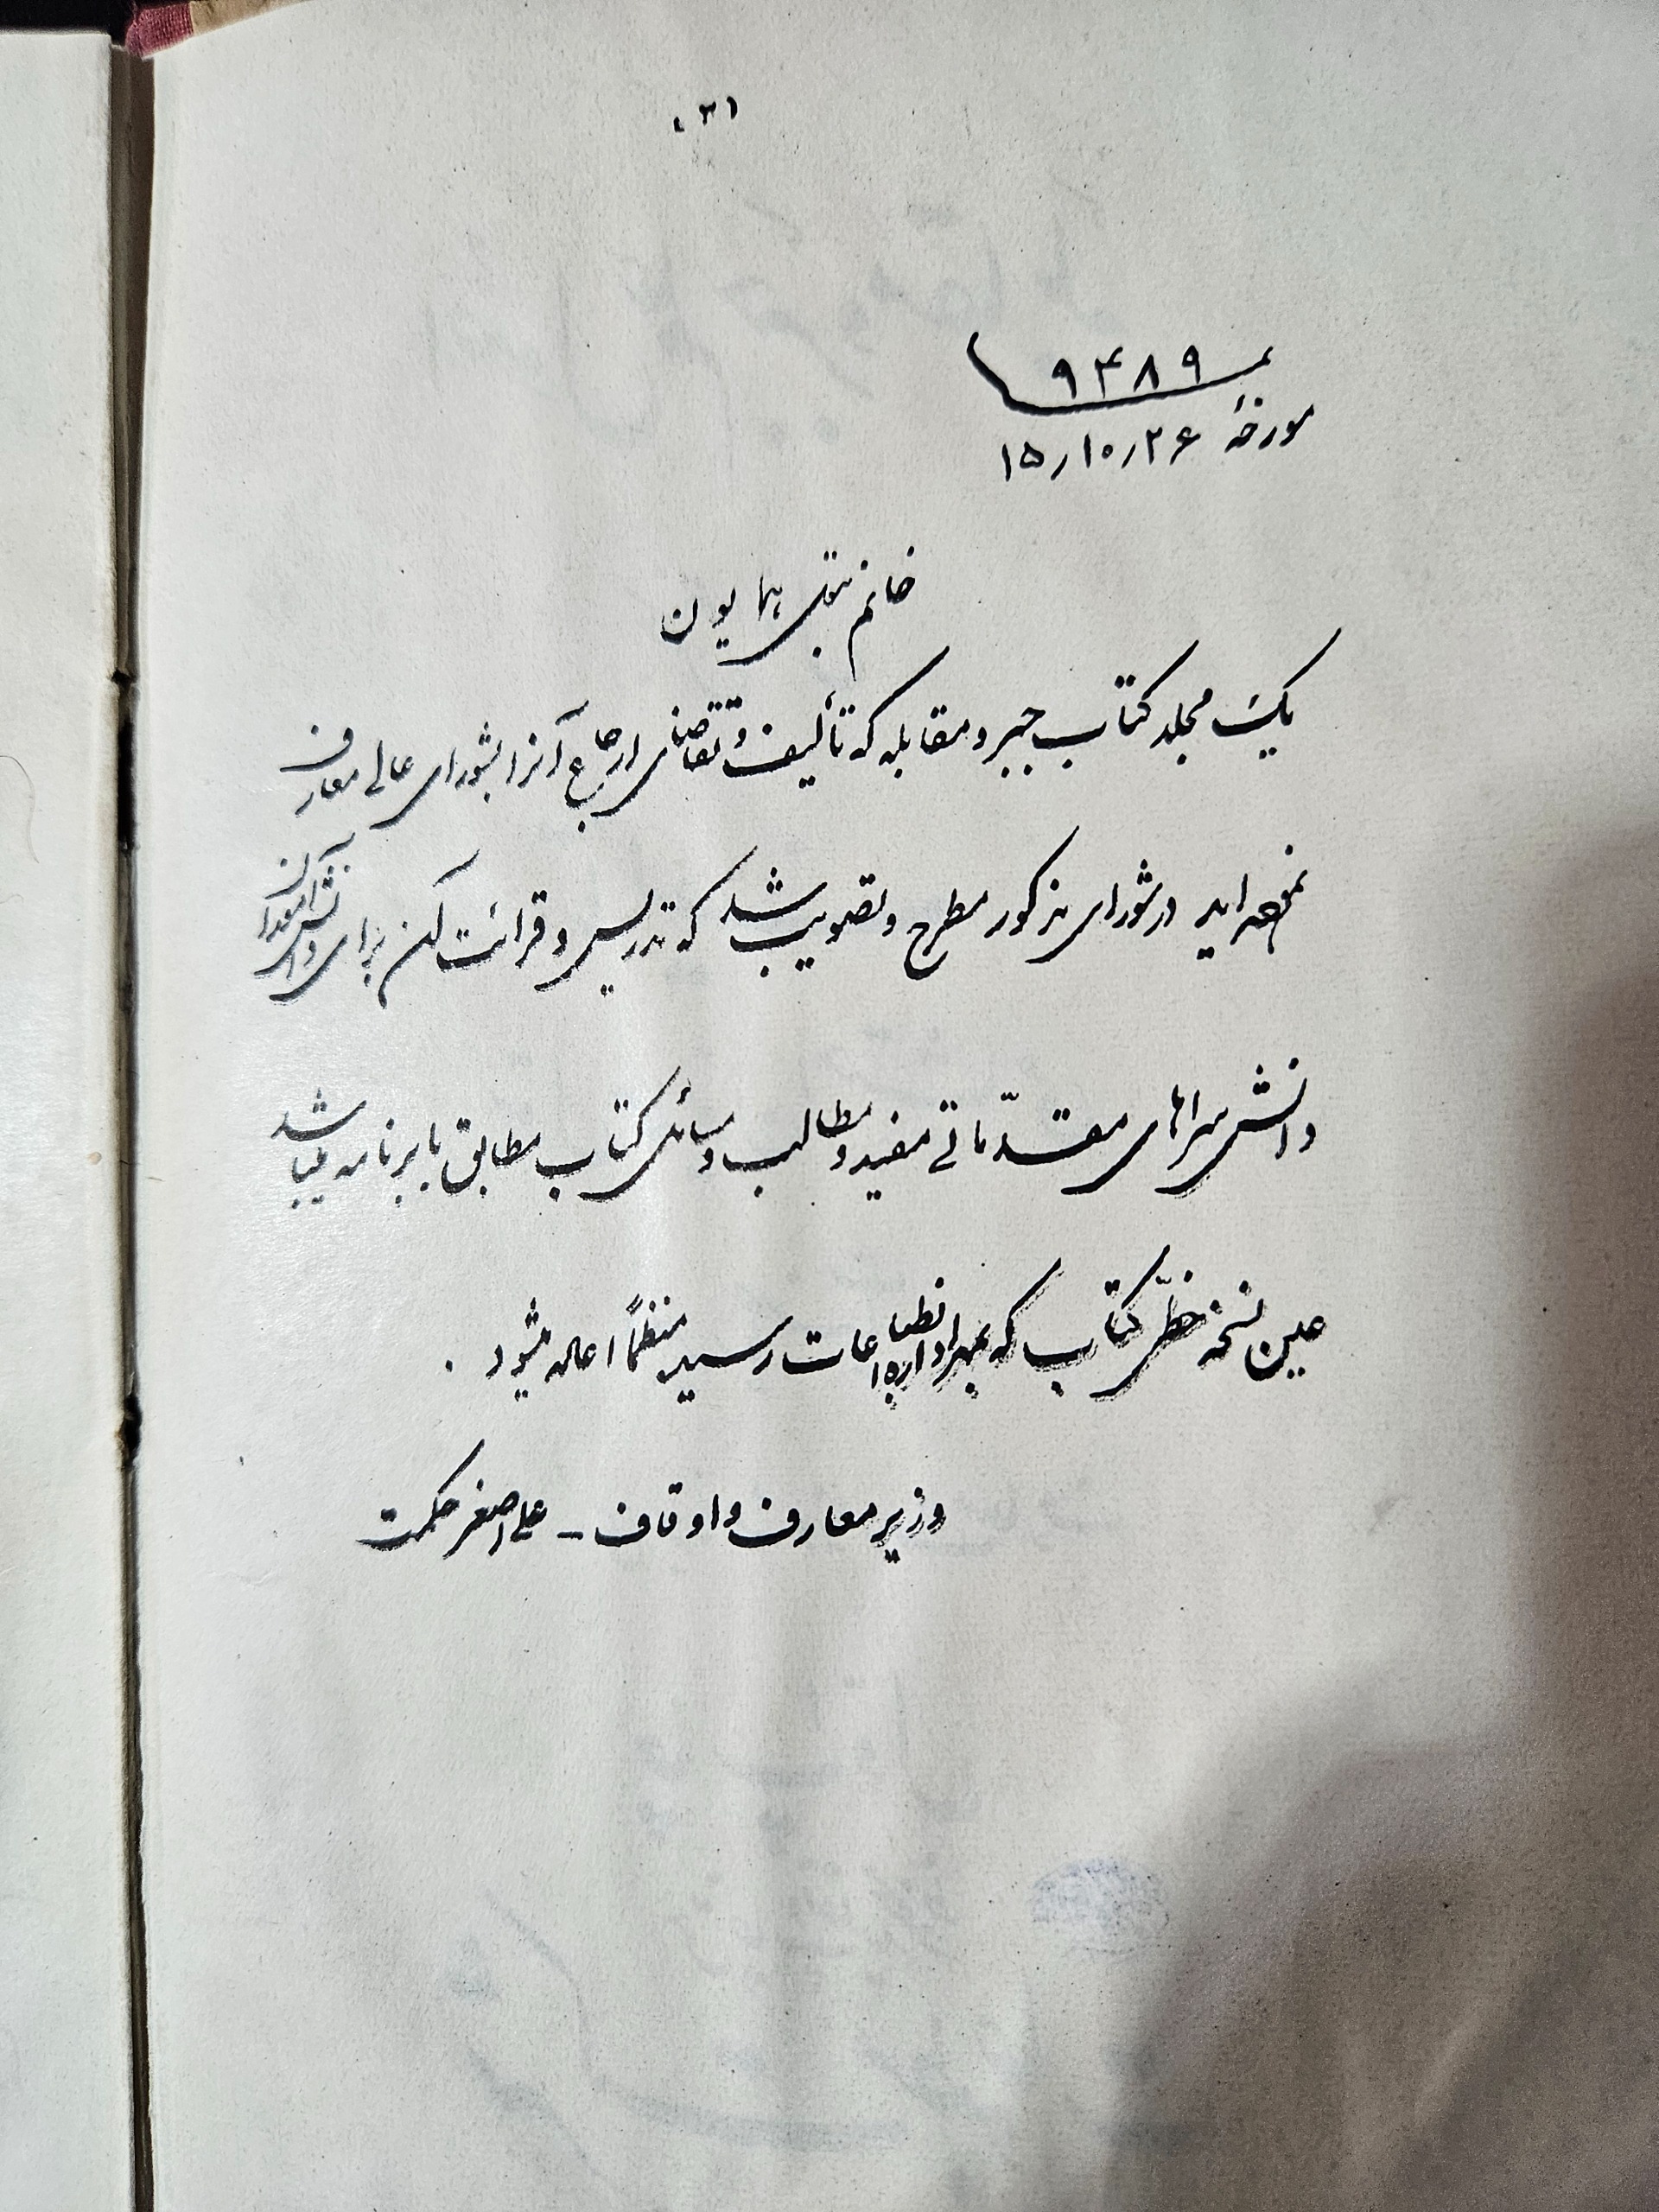 (۳)
نمره ۹۴۸۹
مورخهٔ ۱۵/۱۰/۲۶
خانم بتول همایون
یک مجلد کتاب جبر و مقابله که تألیف و تقاضای ارجاع آنرا بشورای عالی معارف
نموده‌اید در شورای مذکور مطرح و تصویب شد که تدریس و قرائت آن برای دانش‌آموزان
دانش‌سراهای مقدّماتی مفید و مطالب و مسائل کتاب مطابق با برنامه میباشد
عین نسخهٔ خطّی کتاب که بمهر اداره انطباعات رسیده منظماً اعاده میشود .
وزیر معارف و اوقاف – علی اصغر حکمت